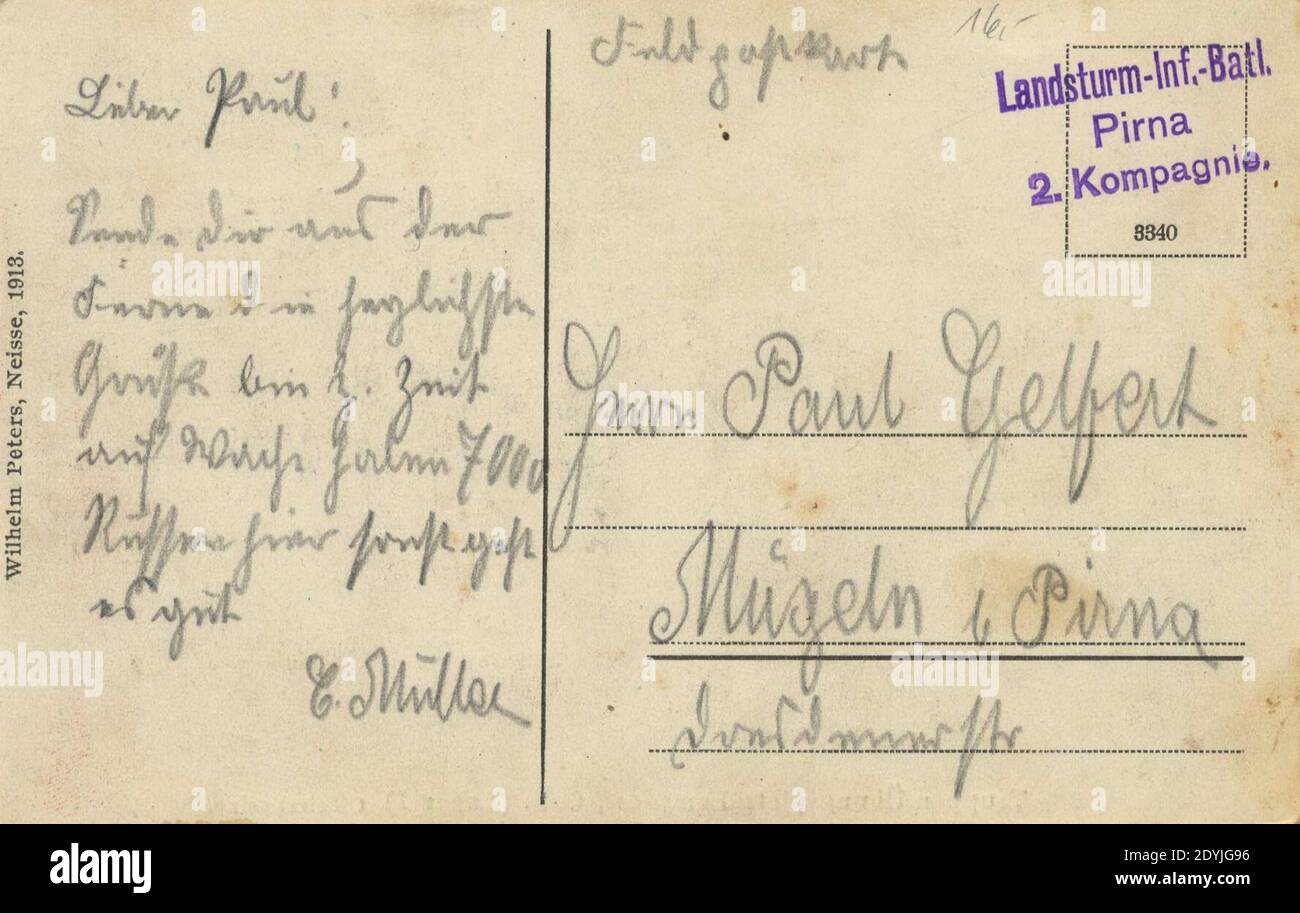 Feldpostkarte
16,-
Landsturm-Inf.-Batl.
Pirna
2. Kompagnie.
3340
Lieber Paul!
Sende Dir aus der
Ferne die herzlichste
Grüße bin z. Zeit
auf Wache haben 7000
Russen hier sonst geht
es gut
E. Müller
Wilhelm Peters, Neisse, 1913.
Herrn Paul Gelfert
Mügeln b Pirna
Dresdenerstr
alamy
Image ID: 2DYJG96
www.alamy.com